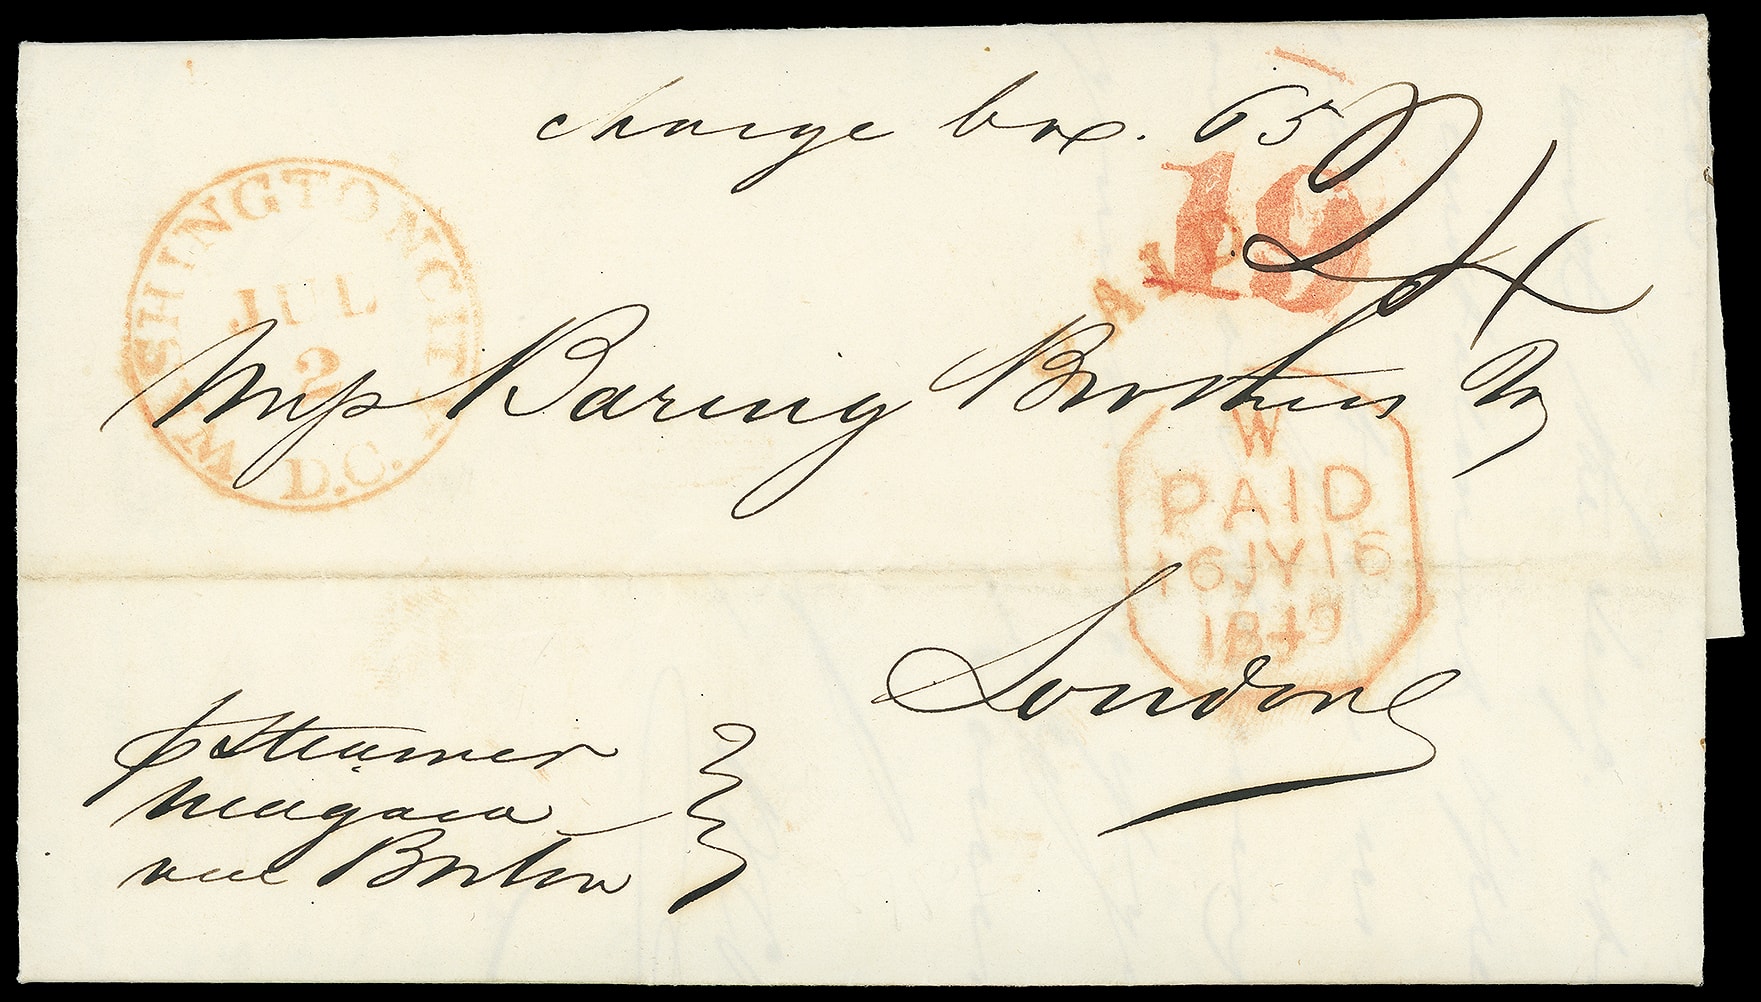 charge box. 65
24
19
PAID
WASHINGTON CITY
JUL
2
D.C.
Mess Baring Brothers
W
PAID
16 JY 16
1849
London
p Steamer
Niagara
via Boston